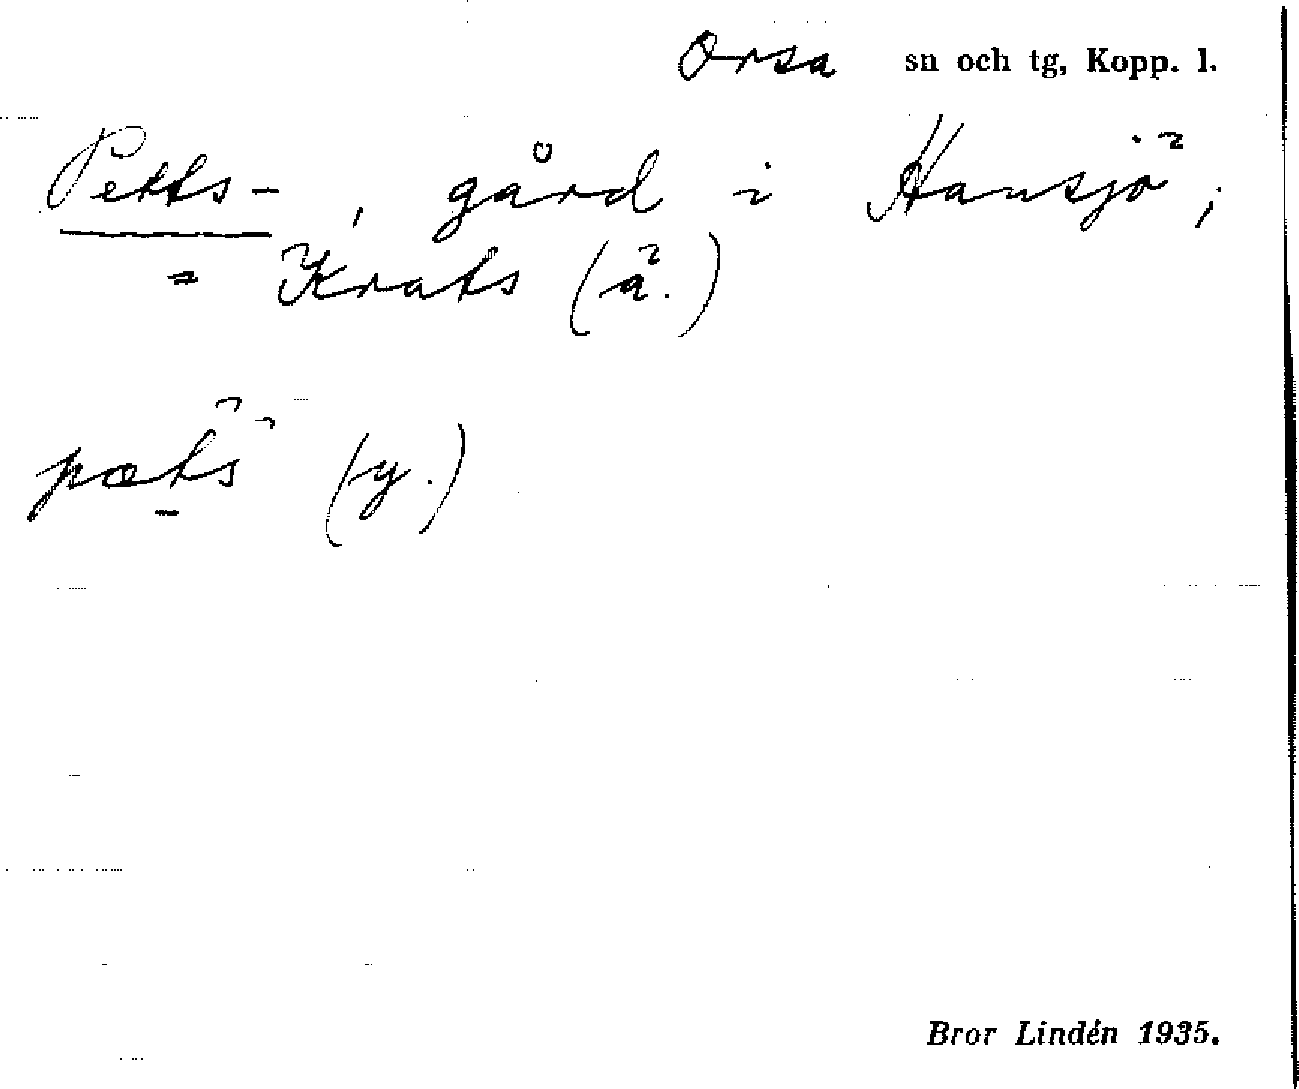 Orsa sn och tg, Kopp. l.
Petts-, gård i Hansjö;
= Krats (ä.)
pæts (y.)
Bror Lindén 1935.